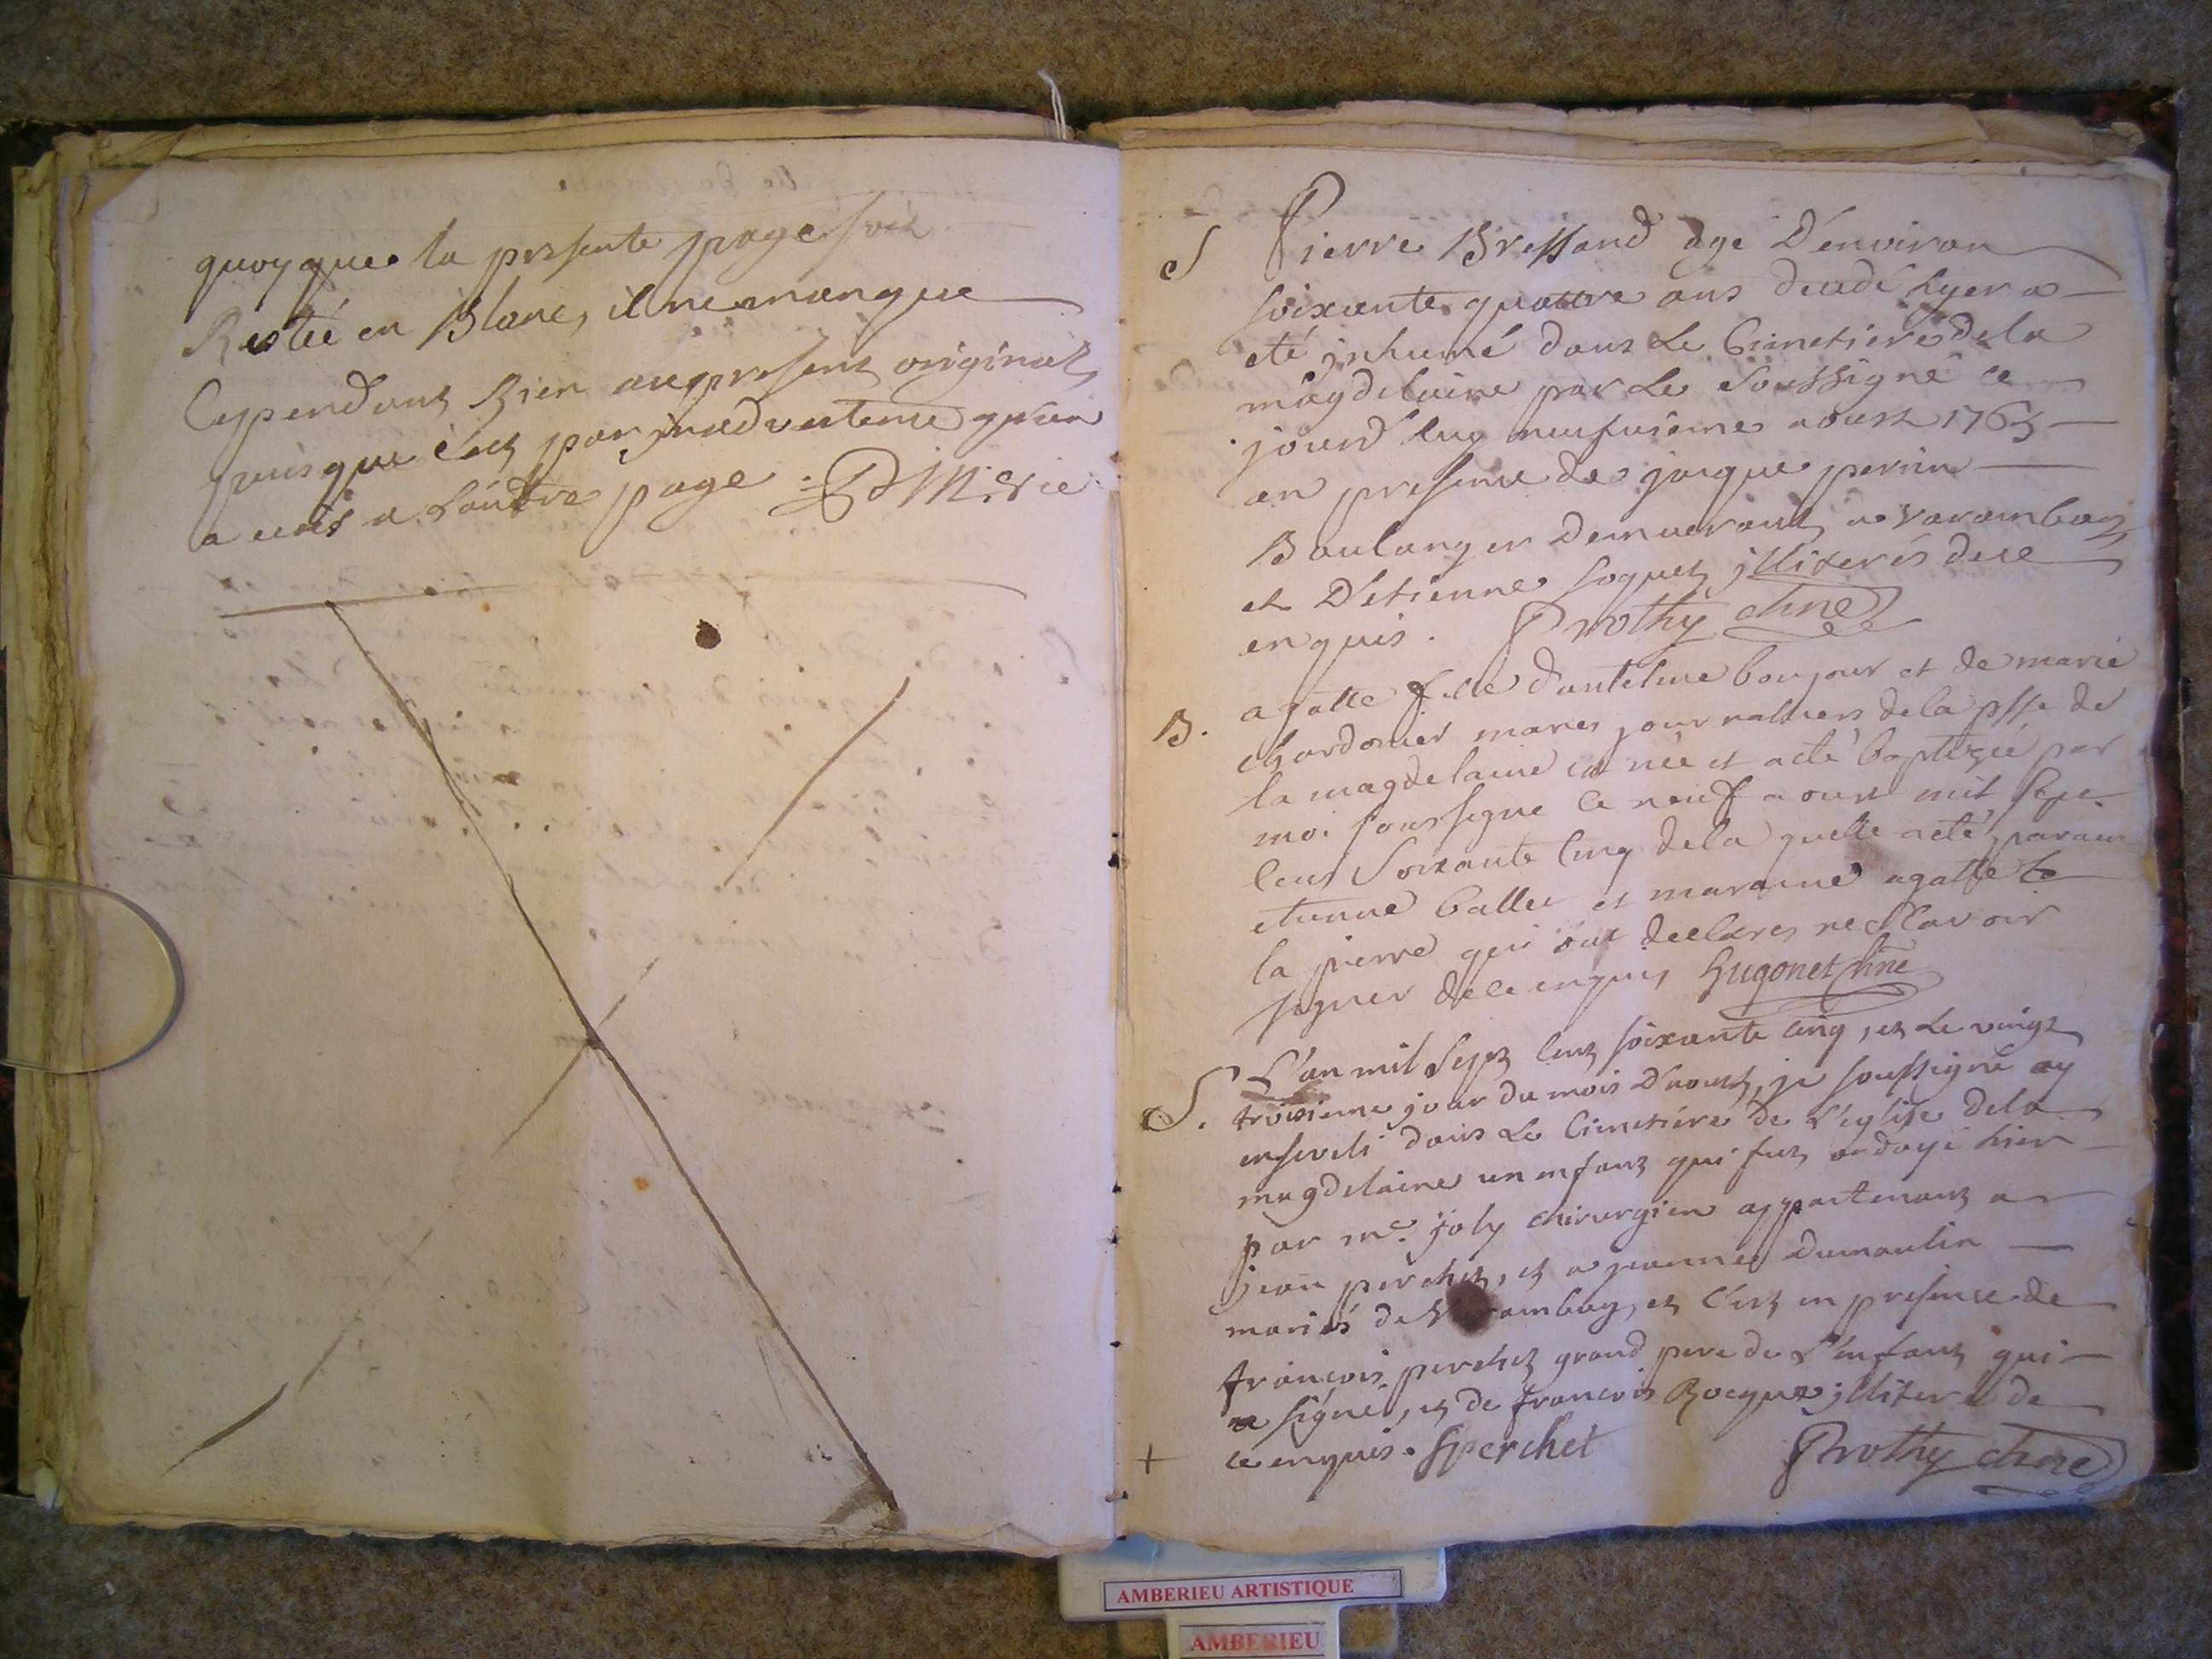 quoy que la presente page soit
Restée en Blanc, il ne manque
Cependant Rien au present original,
puis que c'est par inadvertence qu'on
a ecris a L'autre page
S Pierre Bressand agé D'environ
soixante quattre ans decedé hyer a
eté inhumé dans Le Cimetiere de la
magdelaine par Le Soussigné ce
jourd'huy neufvième aoust 1765
en presence de jacque perrin
Boulanger Demeurant a varambon
et D'etienne soquet illiterés de ce
enquis. Prothy chne
B. agatte fille d'antelme bonjour et de marie
chardonet maries journaliers de la psse de
la magdelaine est née et a eté baptizée par
moi soussigné le neuf aoust mil sept
cent soixante cinq de la quelle a eté parain
etienne ballet et maraine agatte
la pierre qui ont declares ne sçavoir
signer de ce enquis Hugonet chne
S. L'an mil sept cent soixante cinq, et Le vingt
troisieme jour du mois D'aoust, je soussigné ay
enseveli dans Le Cimetiére de L'eglise de la
magdelaine un enfant qui fut ondoyé hier
par me. joly chirurgien appartenant a
jean perchet, et a jeanne Dumoulin
mariés de rambon, et c'est en presence de
françois perchet grand pere de L'enfant qui
a signé, et de francois Rocque illiteré de
+ ce enquis. f perchet Prothy chne
AMBERIEU ARTISTIQUE
AMBERIEU